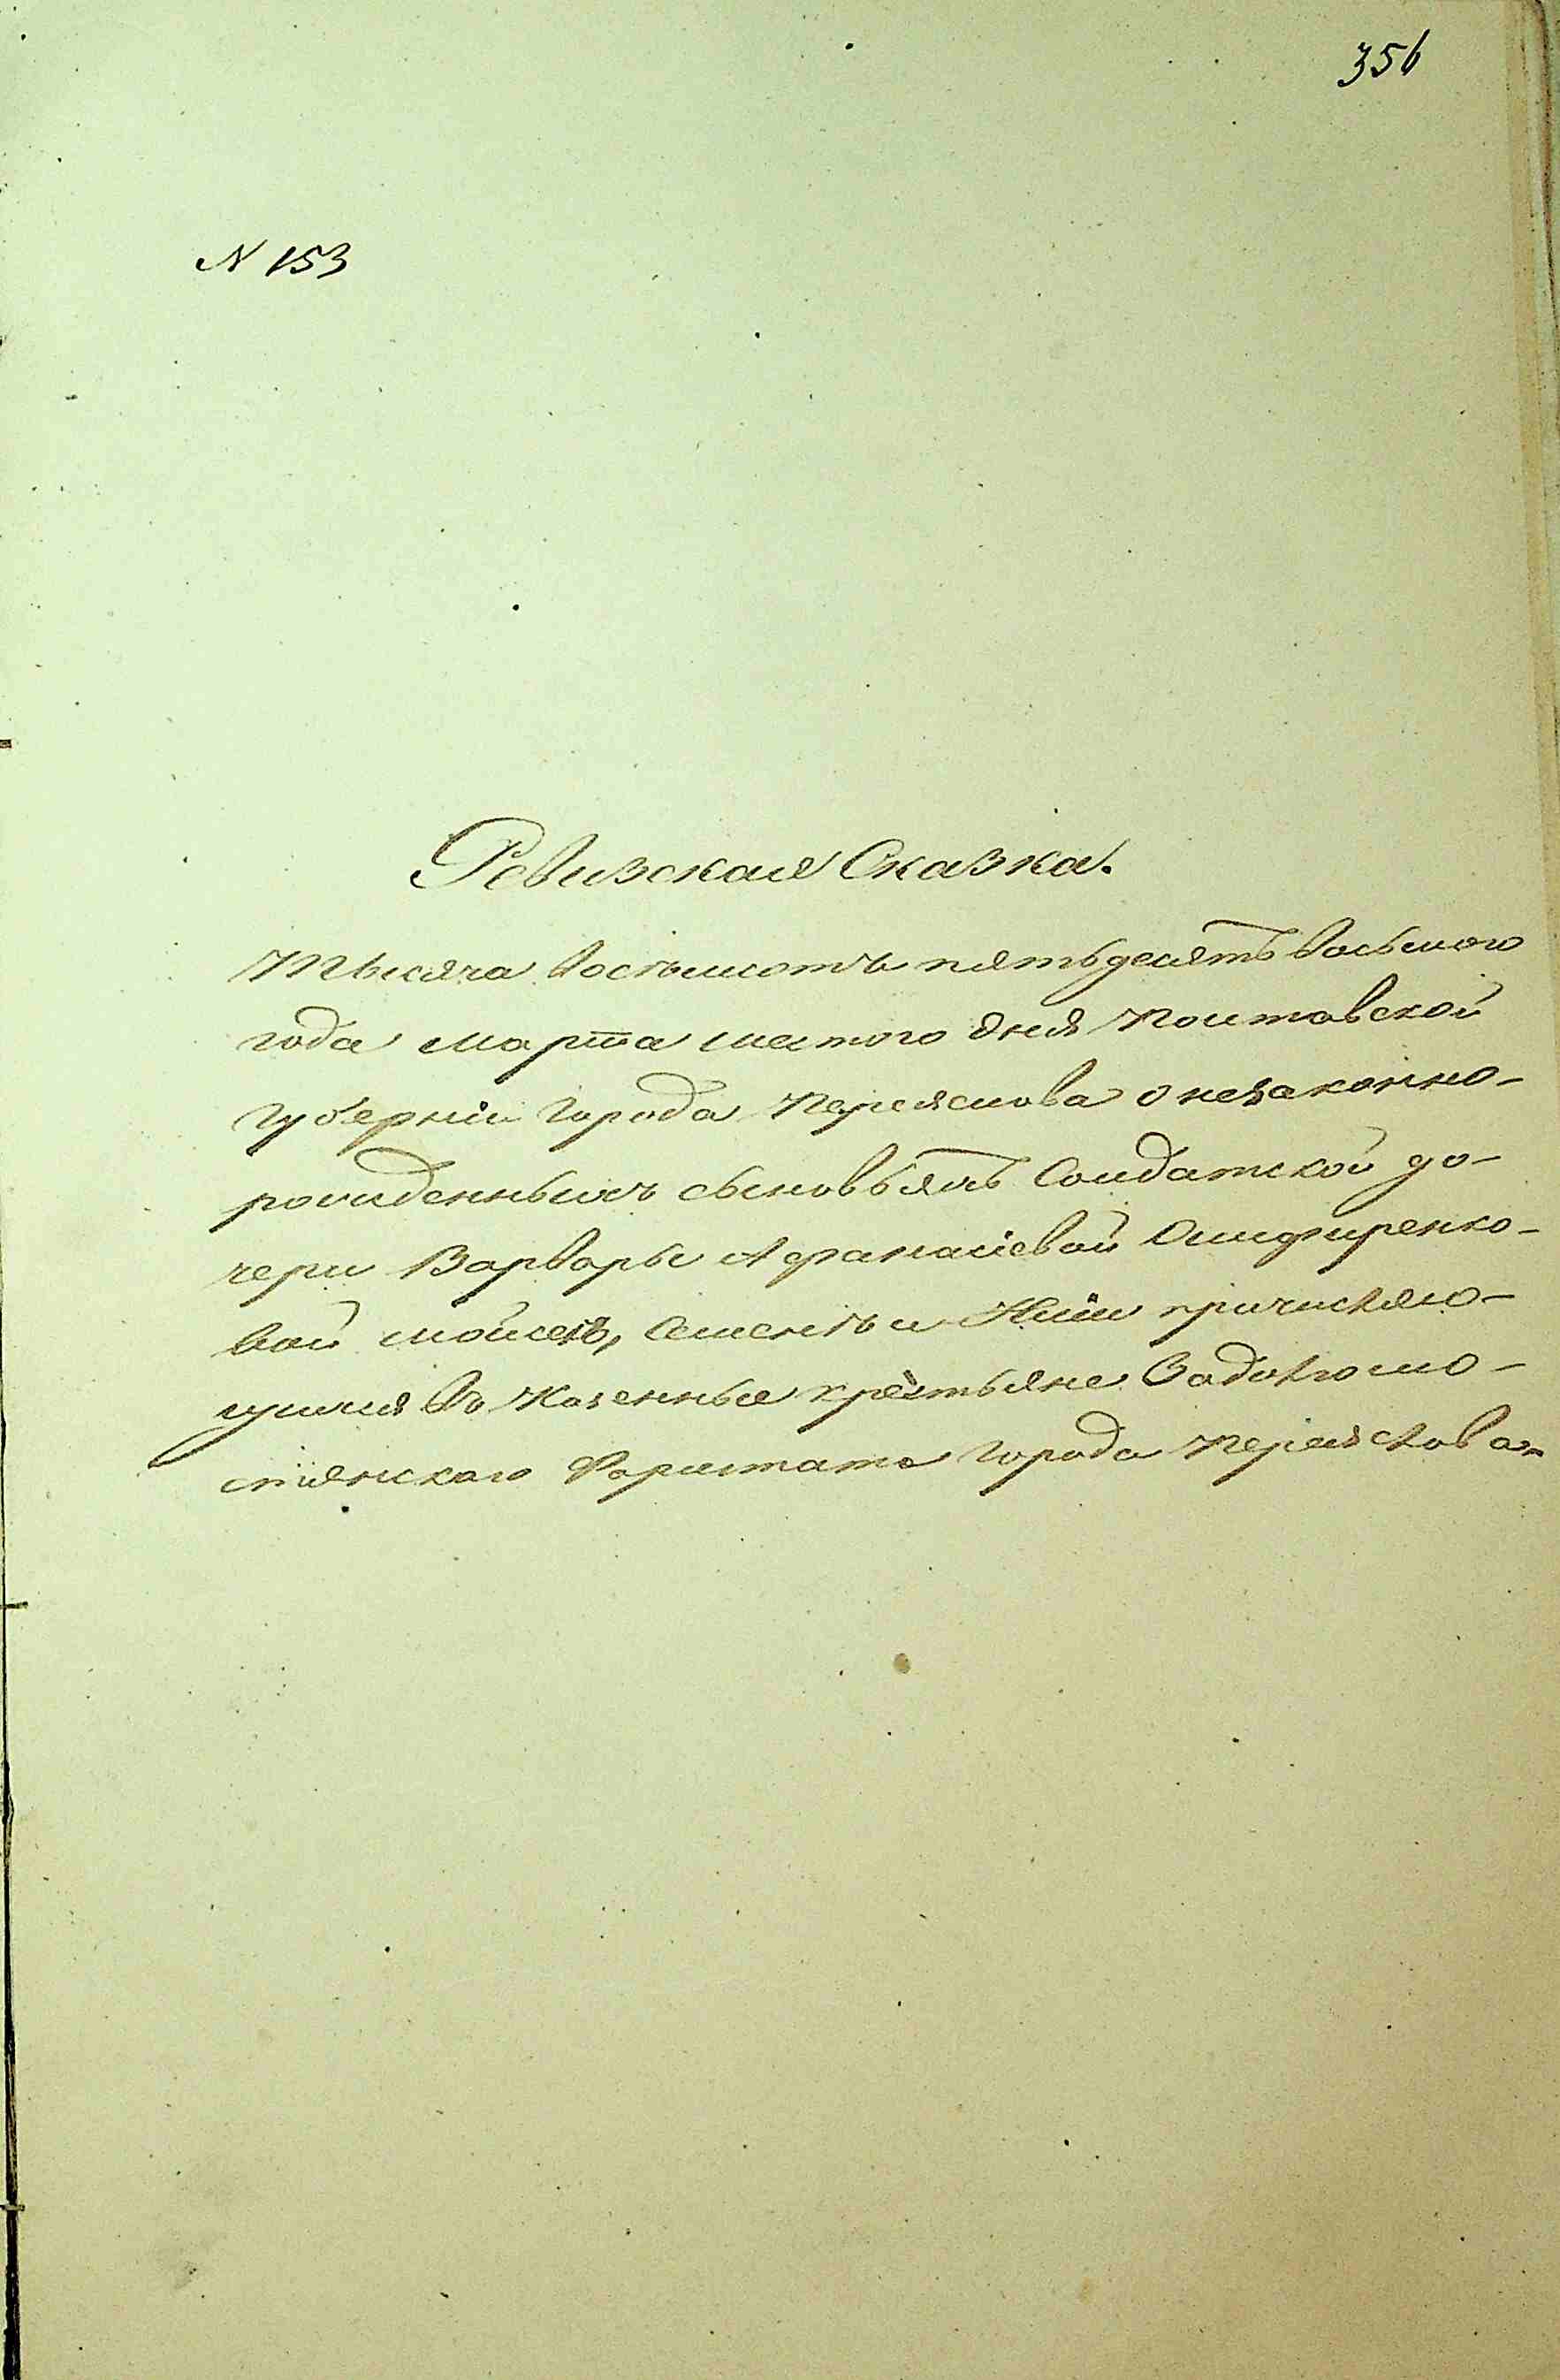 356
N 153
Ревизская Сказка.
Тысяча восемьсотъ пятьдесятъ восьмого
года марта шестого дня Полтавской
губерніи города Переяслова о незаконно-
рожденныхъ сыновьяхъ Солдатской до-
чери Варвары Афанасіевой
вой Мойсей, Семенъ и причисляю-
щихся въ Казенные крестьяне
Форштата города Переяслова